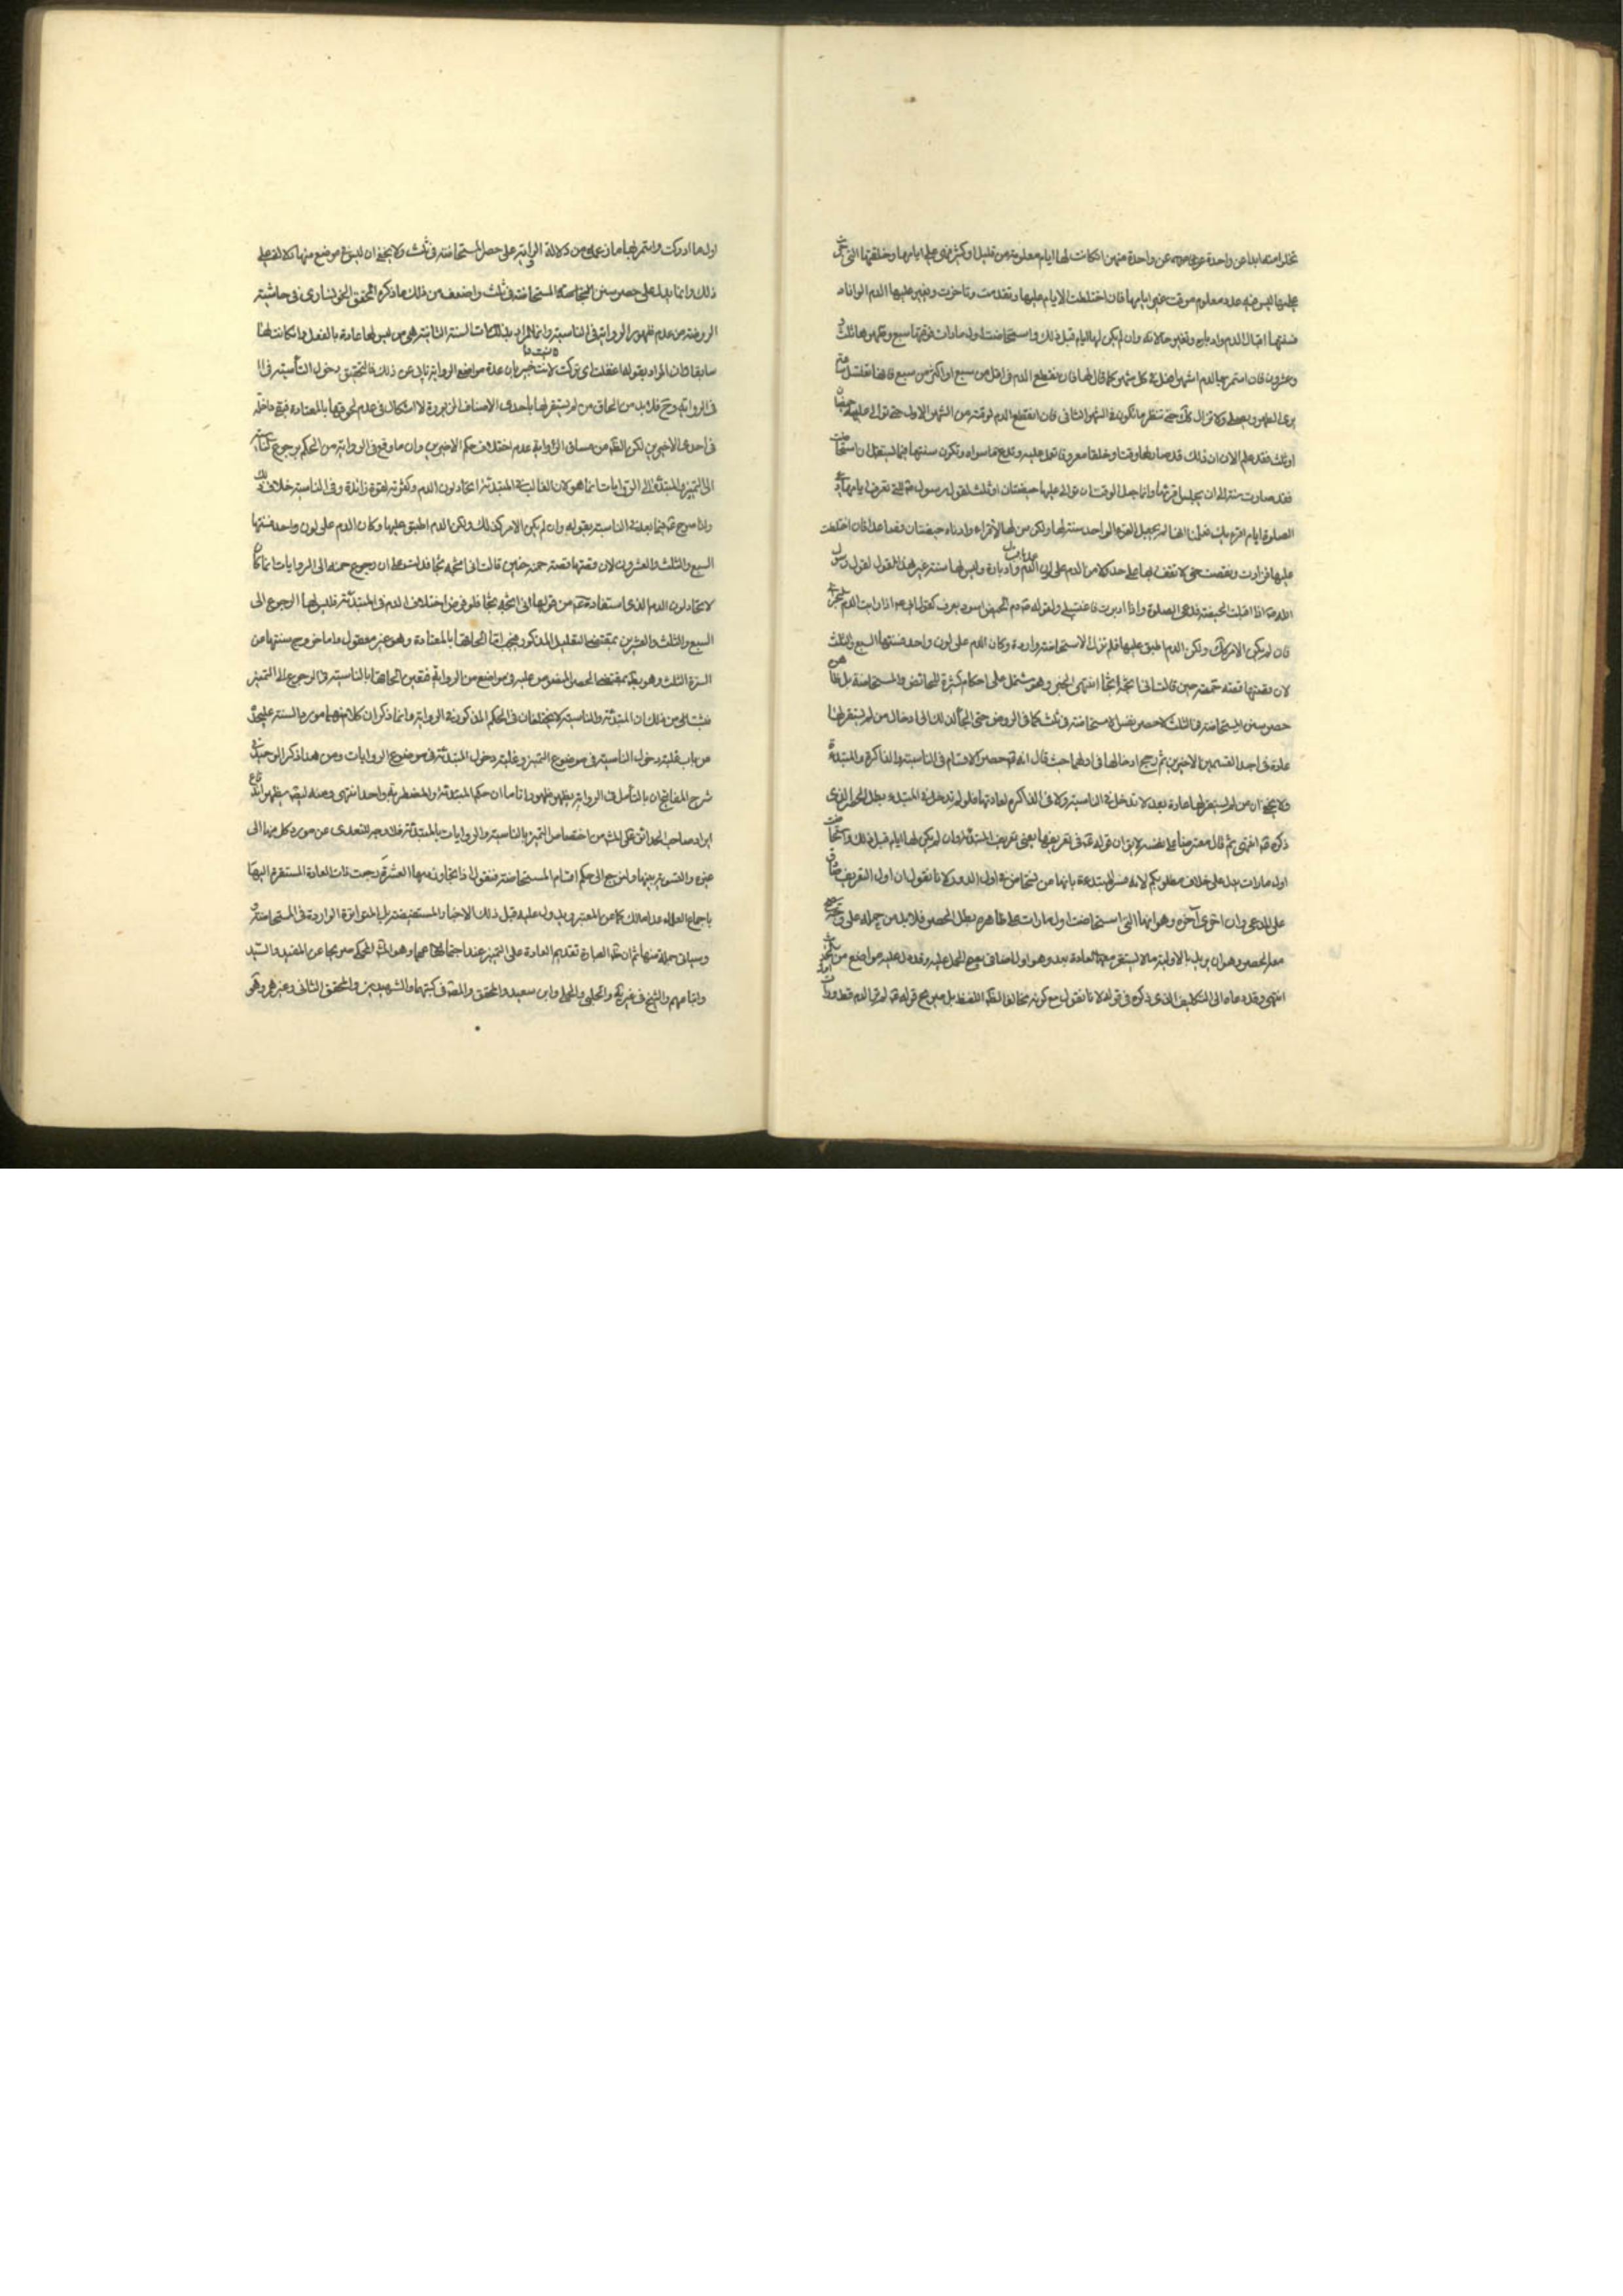 تخلو منها ابدا عن واحدة من واحدة منهن ان كانت لها ايام معلومة من قليل او كثير فهي على ايامها وخلقتها التي جرت
عليها ليس فيه عدد معلوم موقت غير ايامها فان اختلطت الايام عليها وتقدمت وتاخرت وتغير عليها الدم الوانا
فسنتها اقبال الدم وادباره وتغير حالاته وان لم يكن لها ايام قبل ذلك واستحاضت اول ما رات فوقتها سبع وطهرها ثلث
وعشرون فان استمر بها الدم اشهرا فعلت في كل شهر كما قال لها فان انقطع الدم في اقل من سبع او اكثر من سبع فانها تغتسل ساعة
ترى الطهر وتصلي ولا تزال كذلك حتى تنظر ما يكون في الشهر الثاني فان انقطع الدم لوقته من الشهر الاول حتى توالى عليها حيضتان
او ثلث فقد علم الان ان ذلك قد صار لها وقتا وخلقا معروفا تعمل عليه وتدع ما سواه وتكون سنتها فيما يستقبل ان استحاضت
فقد صارت سنة الى ان تجلس اقرائها وانما جعل الوقت ان توالى عليها حيضتان او ثلث لقول رسول الله للتي تعرف ايامها دعي
الصلوة ايام اقرائك فعلمنا انه لم يجعل القرء الواحد سنة لها ولكن سن لها الاقراء وادناه حيضتان فصاعدا فان اختلطت
عليها فزادت ونقصت حتى لا تقف لها على حد ولا من الدم على لون عملت باقبال الدم وادباره وليس لها سنة غير هذا لقول رسول
الله اذا اقبلت الحيضة فدعي الصلوة واذا ادبرت فاغتسلي ولقوله ان دم الحيض اسود يعرف كقول ابي اذا رايت الدم البحراني
فان لم يكن الامر كذلك ولكن الدم اطبق عليها فلم تزل الاستحاضة دارة وكان الدم على لون واحد فسنتها السبع والثلث
لان قصتها قصة حمنة حين قالت اني اثجه ثجا انتهى الخبر وهو مشتمل على احكام كثيرة للحائض والمستحاضة
حصر سنن المستحاضة في الثلث لا حصر نفس الاستحاضة في ثلث كما في الروض حتى الجأ ذلك الى ادخال من لم يستقر لها
عادة في احد القسمين الاخيرين ثم رجح ادخالها في اولهما حيث قال انه حصر الاقسام في الناسية والذاكرة والمبتدئة
ولا يخفى ان من لم يستقر لها عادة بعد لا تدخل في الناسية ولا في الذاكرة لعادتها فلو لم تدخل في المبتدئة بطل الحصر الذي
ذكره انتهى ثم قال معترضا على نفسه لا يق ان قوله في تعريفها يعني تعريف المبتدئة وان لم يكن لها ايام قبل ذلك واستحاضت
اول ما رات يدل على خلاف مطلوبكم لانه فسر المبتدئة بانها من استحاضت في اول الدور لانا نقول ان اول التعريف صادق
على المدعى وان اخرى آخره وهو انها التي استحاضت اول ما رات على ظاهره بطل الحصر فلا بد من حمله على وجه يصح
معه الحصر وهو ان يريد بالاولية ما لا يستقر معها العادة بعد وهو اول اضافي يصح الحمل عليه وقد دل عليه مواضع من
انتهى وقد دعاه الى التكليف الذي ذكره في قوله لانا نقول مع كونه مخالفا لظ اللفظ بل صريح قوله لم تر الدم قط ورات
اول ما ادركت واستمر بها ما زعمه من دلالة الرواية على حصر المستحاضة في ثلث ولا يخفى ان ليس في موضع منها دلالة على
ذلك وانما يدل على حصر سنن المستحاضة في ثلث واضعف من ذلك ما ذكره المحقق الخونساري في حاشية
الروضة من عدم ظهور الرواية في الناسية وانما المراد السنة الثانية هي من ليس لها عادة بالفعل وان كانت لها
سابقا وان المراد بقوله اغفلت اي تركت لانت خبير بان عدة مواضع الرواية تابى عن ذلك فالتحقيق دخول الناسية
في الرواية وح فلا بد من الحاق من لم يستقر لها باحدى الاصناف المزبورة لا اشكال في عدم لحوقها بالمعتادة فهي داخلة
في احدى الاخيرين لكن الظ من مساق الرواية عدم اختلاف حكم الاخيرين وان ما وقع في الرواية من الحكم برجوع الناسية
الى التميز والمبتدئة الى الروايات انما هو لان الغالب في المبتدئة اتحاد لون الدم وكثرته لقوة زائدة وفي الناسية خلاف ذلك
ولذا صرح فيما بعد في الناسية بقوله وان لم يكن الامر كذلك ولكن الدم اطبق عليها وكان الدم على لون واحد فسنتها
السبع والثلث والعشرون لان قصتها قصة حمنة حين قالت اني اثجه ثجا فدلت على ان رجوع حمنة الى الروايات انما كان
لاتحاد لون الدم الذي استفاده من قولها اني اثجه ثجا فلو فرض اختلاف الدم في المبتدئة فليس لها الرجوع الى
السبع والثلث والعشرين بمقتضى التعليل المذكور فيجب اما الحاقها بالمعتادة وهو غير معقول واما خروج سنتها من
السنن الثلث وهو بعيد بمقتضى الحصر المنصوص عليه في مواضع من الرواية فتعين الحاقها بالناسية في الرجوع الى التميز
فثبت من ذلك ان المبتدئة والناسية لا يختلفان في الحكم المذكور في الرواية وانما ذكر ان كلا منهما مورد السنة على حدة
من باب غلبة دخول الناسية في موضوع التميز وغلبة دخول المبتدئة في موضوع الروايات ومن هنا ذكر الوحيد في
شرح المفاتيح ان بالتأمل في الرواية يظهر ظهورا تاما ان حكم المبتدئة والمضطربة واحد انتهى ومنه ليق يظهر اندفاع
ايراد صاحب الحدائق على المش من اختصاص التميز بالناسية والروايات بالمبتدئة فلا وجه للتعدي عن مورد كل منها الى
غيره والتسوية بينها ولنرجع الى حكم اقسام المستحاضة فنقول اذا تجاوز دمها العشرة رجعت ذات العادة المستقرة اليها
باجماع العلماء عدا مالك كما عن المعتبر ويدل عليه قبل ذلك الاخبار المستفيضة بل المتواترة الواردة في المستحاضة
وسياتى جملة منها ثم ان ظ العبارة تقديم العادة على التميز عند اجتماعهما وهو المش المحكى صريحا عن المفيد والسيد
واتباعهم والشيخ في غير والحلبي والحلي وابن سعيد والمحقق والمصنف في كتبهما والشهيدين والمحقق الثاني وغيرهم وهو